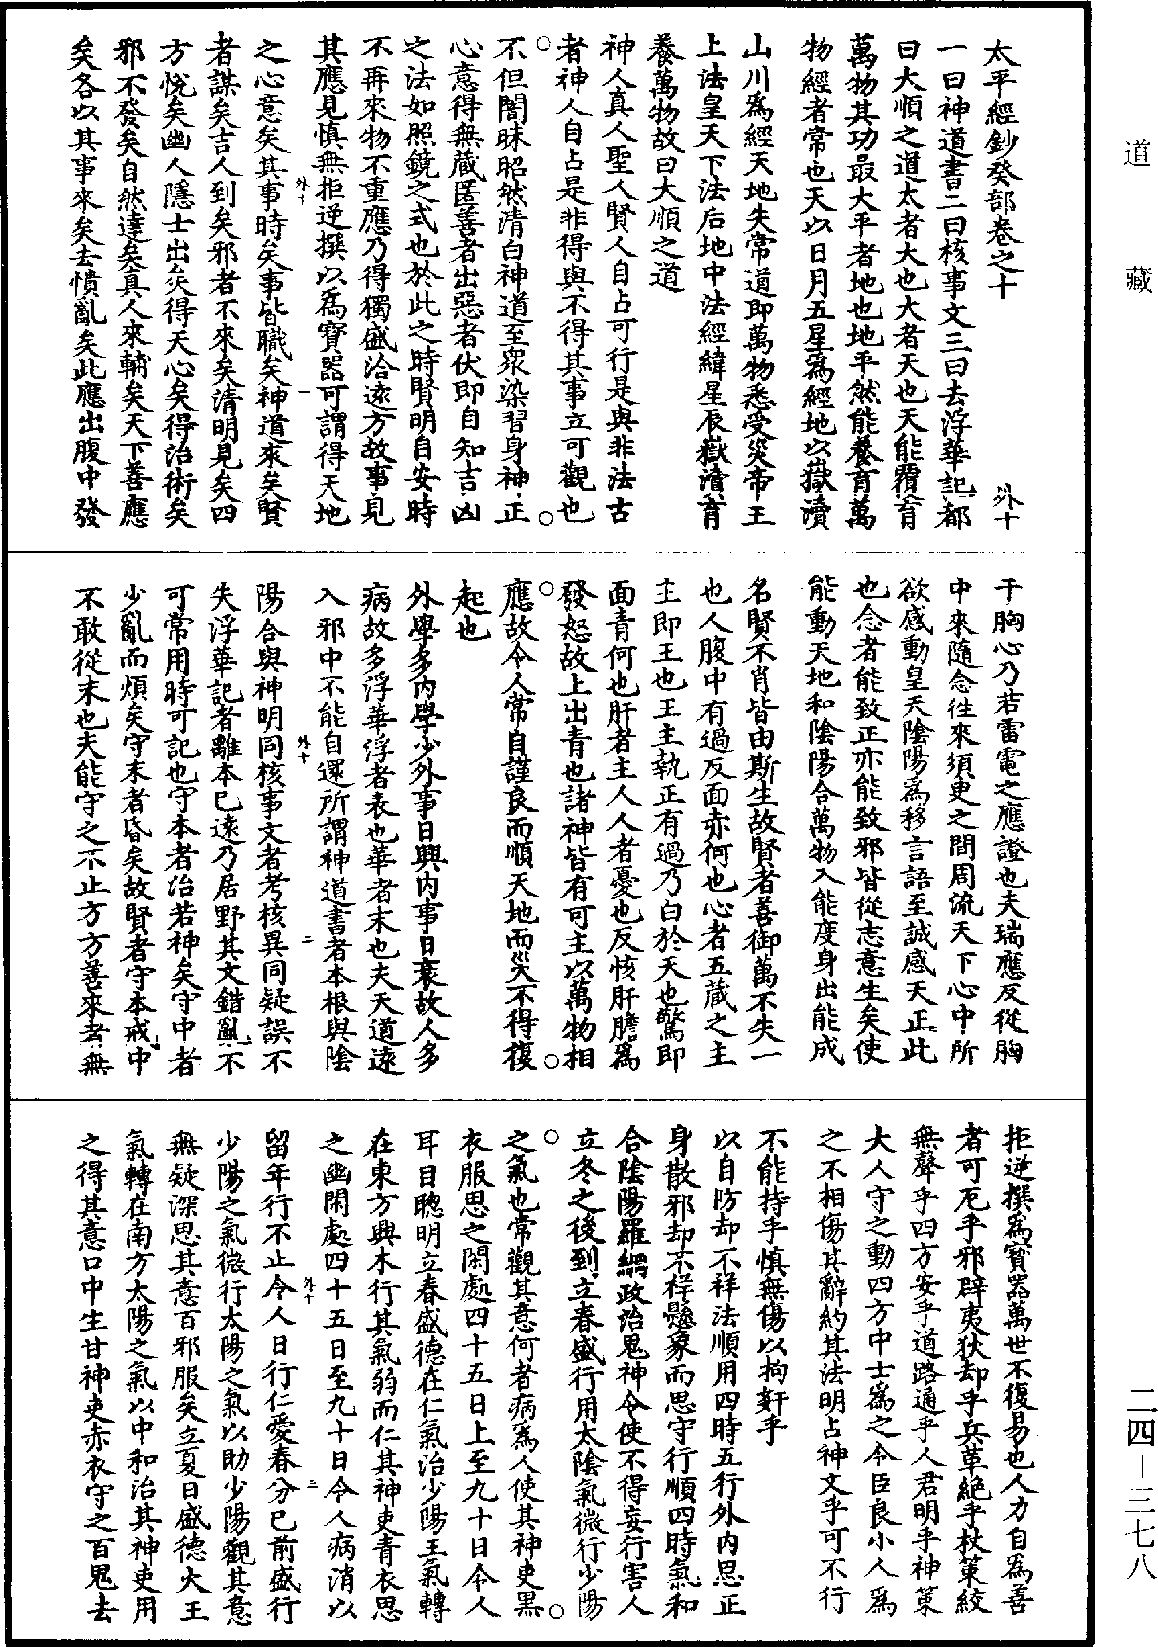 太平經鈔癸部卷之十　外十
一曰神道書二曰核事文三曰去浮華記都
曰大順之道太者大也大者天也天能覆育
萬物其功最大平者地也地平然能養育萬
物經者常也天以日月五星爲經地以嶽瀆
山川爲經天地失常道即萬物悉受災帝王
上法皇天下法后地中法經緯星辰嶽瀆育
養萬物故曰大順之道
神人真人聖人賢人自占可行是與非法古
者神人自占是非得與不得其事立可觀也
不但闇昧昭然清白神道至衆染習身神正
心意得無藏匿善者出惡者伏即自知吉凶
之法如照鏡之式也於此之時賢明自安時
不再來物不重應乃得獨盛洽遠方故事見
其應見慎無拒逆撰以爲寶器可謂得天地
外十　一
之心意矣其事時矣事皆職矣神道來矣賢
者謀矣吉人到矣邪者不來矣清明見矣四
方悅矣幽人隱士出矣得天心矣得治術矣
邪不發矣自然達矣真人來輔矣天下善應
矣各以其事來矣去憒亂矣此應出腹中發
于胸心乃若雷電之應證也夫瑞應反從胸
中來隨念往來須臾之間周流天下心中所
欲感動皇天陰陽爲移言語至誠感天正此
也念者能致正亦能致邪皆從志意生矣使
能動天地和陰陽合萬物入能度身出能成
名賢不肖皆由斯生故賢者善御萬不失一
也人腹中有過反面赤何也心者五藏之主
主即王也王主執正有過乃白於天也驚即
面青何也肝者主人人者憂也反恢肝膽爲
發怒故上出青也諸神皆有可主以萬物相
應故令人常自謹良而順天地而災不得復
起也
外學多內學少外事日興內事日衰故人多
病故多浮華浮者表也華者末也夫天道遠
入邪中不能自還所謂神道書者本根與陰
外十　二
陽合與神明同核事文者考核異同疑誤不
失浮華記者離本已遠乃居野其文錯亂不
可常用時可記也守本者治若神矣守中者
少亂而煩矣守末者昏矣故賢者守本戒中
不敢從末也夫能守之不止方方善來者無
拒逆撰爲寶器萬世不復易也人力自爲善
者可厄乎邪辟夷狄却乎兵革絕乎杖策絞
無聲乎四方安乎道路通乎人君明乎神策
大人守之動四方中士爲之令臣良小人爲
之不相傷其辭約其法明占神文乎可不行
不能持乎慎無傷以拘姧乎
以自防却不祥法順用四時五行外內思正
身散邪却不祥懸象而思守行順四時氣和
合陰陽羅網政治鬼神令使不得妄行害人
立冬之後到立春盛行用太陰氣微行少陽
之氣也常觀其意何者病爲人使其神吏黑
衣服思之閑處四十五日上至九十日令人
耳目聰明立春盛德在仁氣治少陽王氣轉
在東方興木行其氣弱而仁其神吏青衣思
之幽閑處四十五日至九十日令人病消以
外十　三
留年行不止令人日行仁愛春分已前盛行
少陽之氣微行太陽之氣以助少陽觀其意
無疑深思其意百邪服矣立夏日盛德火王
氣轉在南方太陽之氣以中和治其神吏用
之得其意口中生甘神吏赤衣守之百鬼去
道藏
二四—三七八